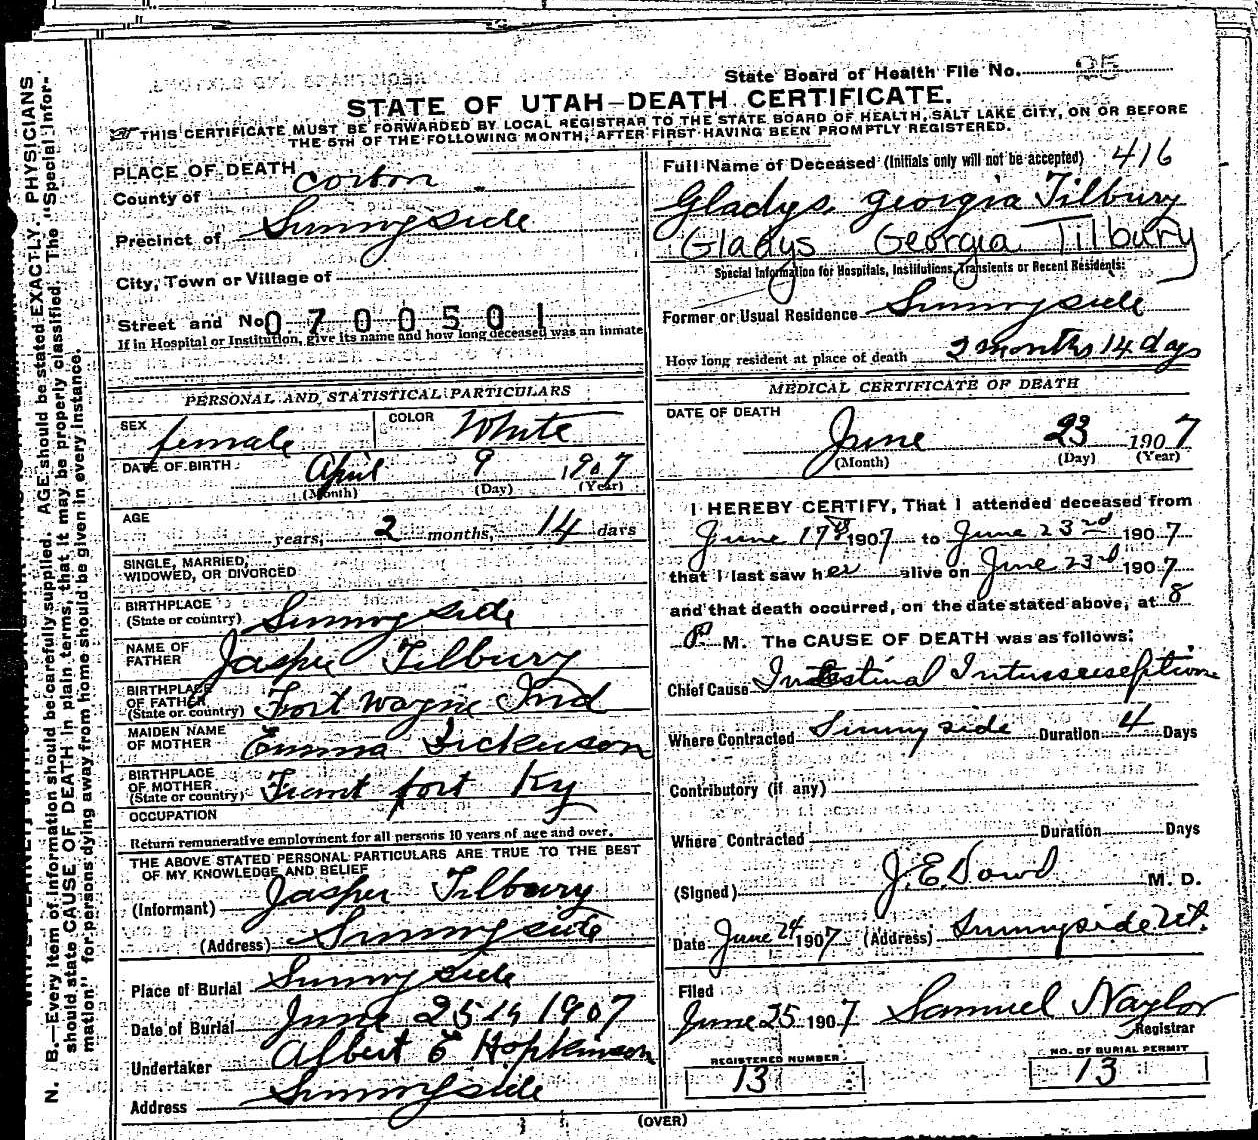 State Board of Health File No. 25
STATE OF UTAH—DEATH CERTIFICATE.
THIS CERTIFICATE MUST BE FORWARDED BY LOCAL REGISTRAR TO THE STATE BOARD OF HEALTH, SALT LAKE CITY, ON OR BEFORE
THE 5TH OF THE FOLLOWING MONTH, AFTER FIRST HAVING BEEN PROMPTLY REGISTERED.
PLACE OF DEATH
County of Corbon
Precinct of Sunnyside
City, Town or Village of
Street and No. 0700501
If in Hospital or Institution, give its name and how long deceased was an inmate
PERSONAL AND STATISTICAL PARTICULARS
SEX female COLOR White
DATE OF BIRTH April 9 1907
(Month) (Day) (Year)
AGE
years, 2 months, 14 days
SINGLE, MARRIED,
WIDOWED, OR DIVORCED
BIRTHPLACE
(State or country) Sunnyside
NAME OF
FATHER Jasper Tilbury
BIRTHPLACE
OF FATHER
(State or country) Fort Wayne Ind
MAIDEN NAME
OF MOTHER Emma Dickenson
BIRTHPLACE
OF MOTHER
(State or country) Frant fort Ky
OCCUPATION
Return remunerative employment for all persons 10 years of age and over.
THE ABOVE STATED PERSONAL PARTICULARS ARE TRUE TO THE BEST
OF MY KNOWLEDGE AND BELIEF
(Informant) Jasper Tilbury
(Address) Sunnyside
Place of Burial Sunnyside
Date of Burial June 25th 1907
Undertaker Albert E Hopkinson
Address Sunnyside
Full Name of Deceased (Initials only will not be accepted) 416
Gladys georgia Tilbury
Gladys Georgia Tilbury
Special Information for Hospitals, Institutions, Transients or Recent Residents:
Former or Usual Residence Sunnyside
How long resident at place of death 2 months 14 days
MEDICAL CERTIFICATE OF DEATH
DATE OF DEATH
June 23 1907
(Month) (Day) (Year)
I HEREBY CERTIFY, That I attended deceased from
June 17th 1907 to June 23rd 1907
that I last saw her alive on June 23rd 1907
and that death occurred, on the date stated above, at 8
P. M. The CAUSE OF DEATH was as follows:
Chief Cause Intestinal Intussuseption
Where Contracted Sunnyside Duration 4 Days
Contributory (if any)
Where Contracted Duration Days
(Signed) J. E. Dowd M. D.
Date June 24 1907 (Address) Sunnyside Ut.
Filed
June 25 1907 Samuel Naylor
Registrar
REGISTERED NUMBER
13
NO. OF BURIAL PERMIT
13
(OVER)
N. B.—Every item of information should be carefully supplied. AGE should be stated EXACTLY. PHYSICIANS
should state CAUSE OF DEATH in plain terms, that it may be properly classified. The "Special Infor-
mation" for persons dying away from home should be given in every instance.